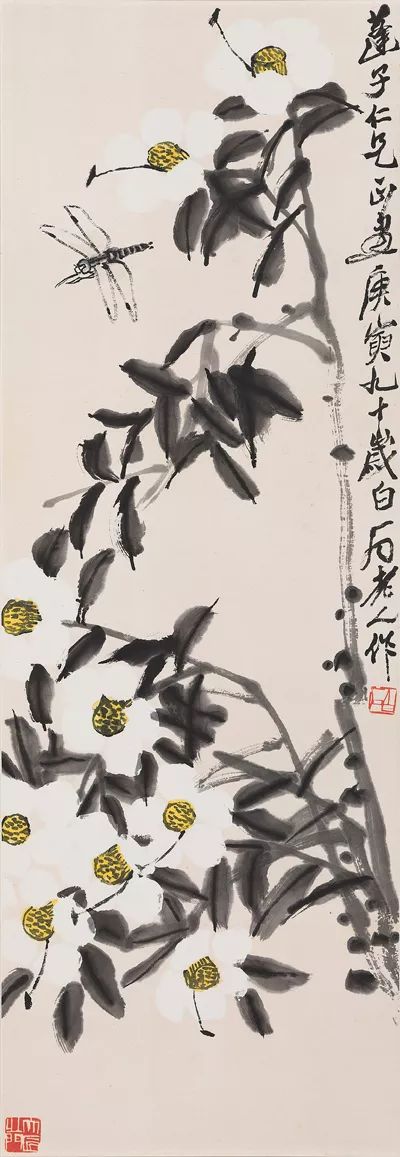 蓮子仁兄正畫庚寅九十歲白石老人作